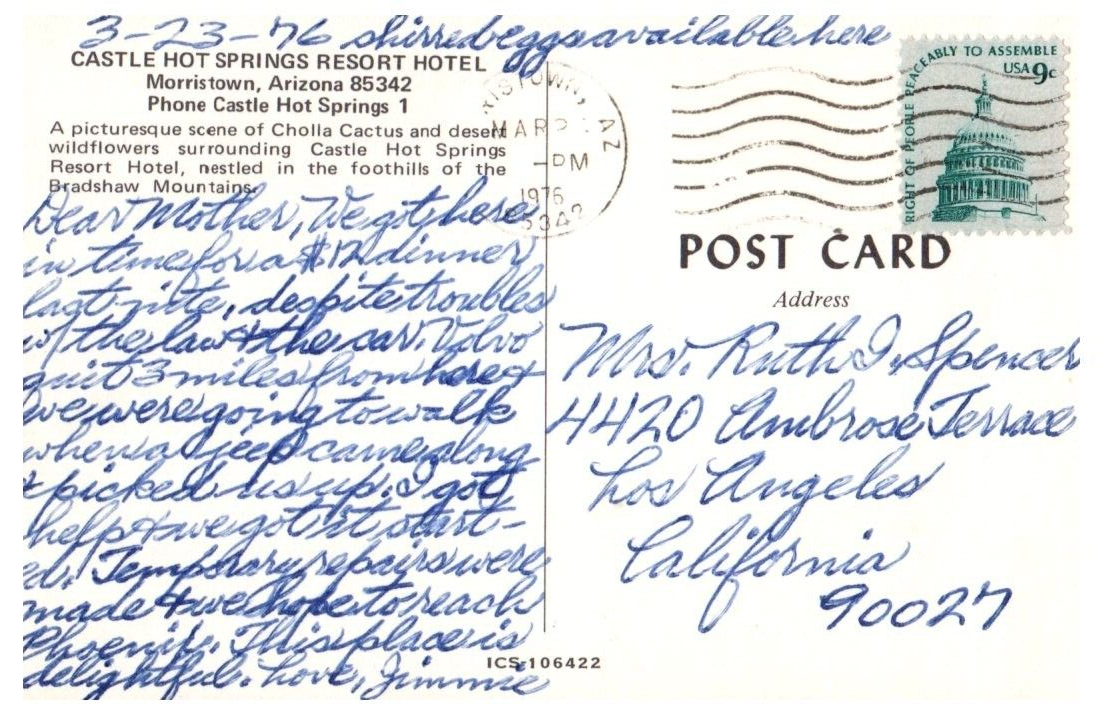 3-23-76 shirred eggs available here
CASTLE HOT SPRINGS RESORT HOTEL
Morristown, Arizona 85342
Phone Castle Hot Springs 1
A picturesque scene of Cholla Cactus and desert
wildflowers surrounding Castle Hot Springs
Resort Hotel, nestled in the foothills of the
Bradshaw Mountains.
Dear Mother, We got here
in time for a $12 dinner
last nite, despite troubles
w/ the law & the car. Volvo
quit 3 miles from here &
we were going to walk
when a jeep came along
& picked us up. I got
help & we got it start-
ed. Temporary repairs were
made & we hope to reach
Phoenix. This place is
delightful. Love, Jimmie
ISTOWN, AZ
MAR
PM
1976
RIGHT OF PEOPLE PEACEABLY TO ASSEMBLE
USA 9c
POST CARD
Address
Mrs. Ruth I. Spencer
4420 Ambrose Terrace
Los Angeles
California
90027
ICS-106422